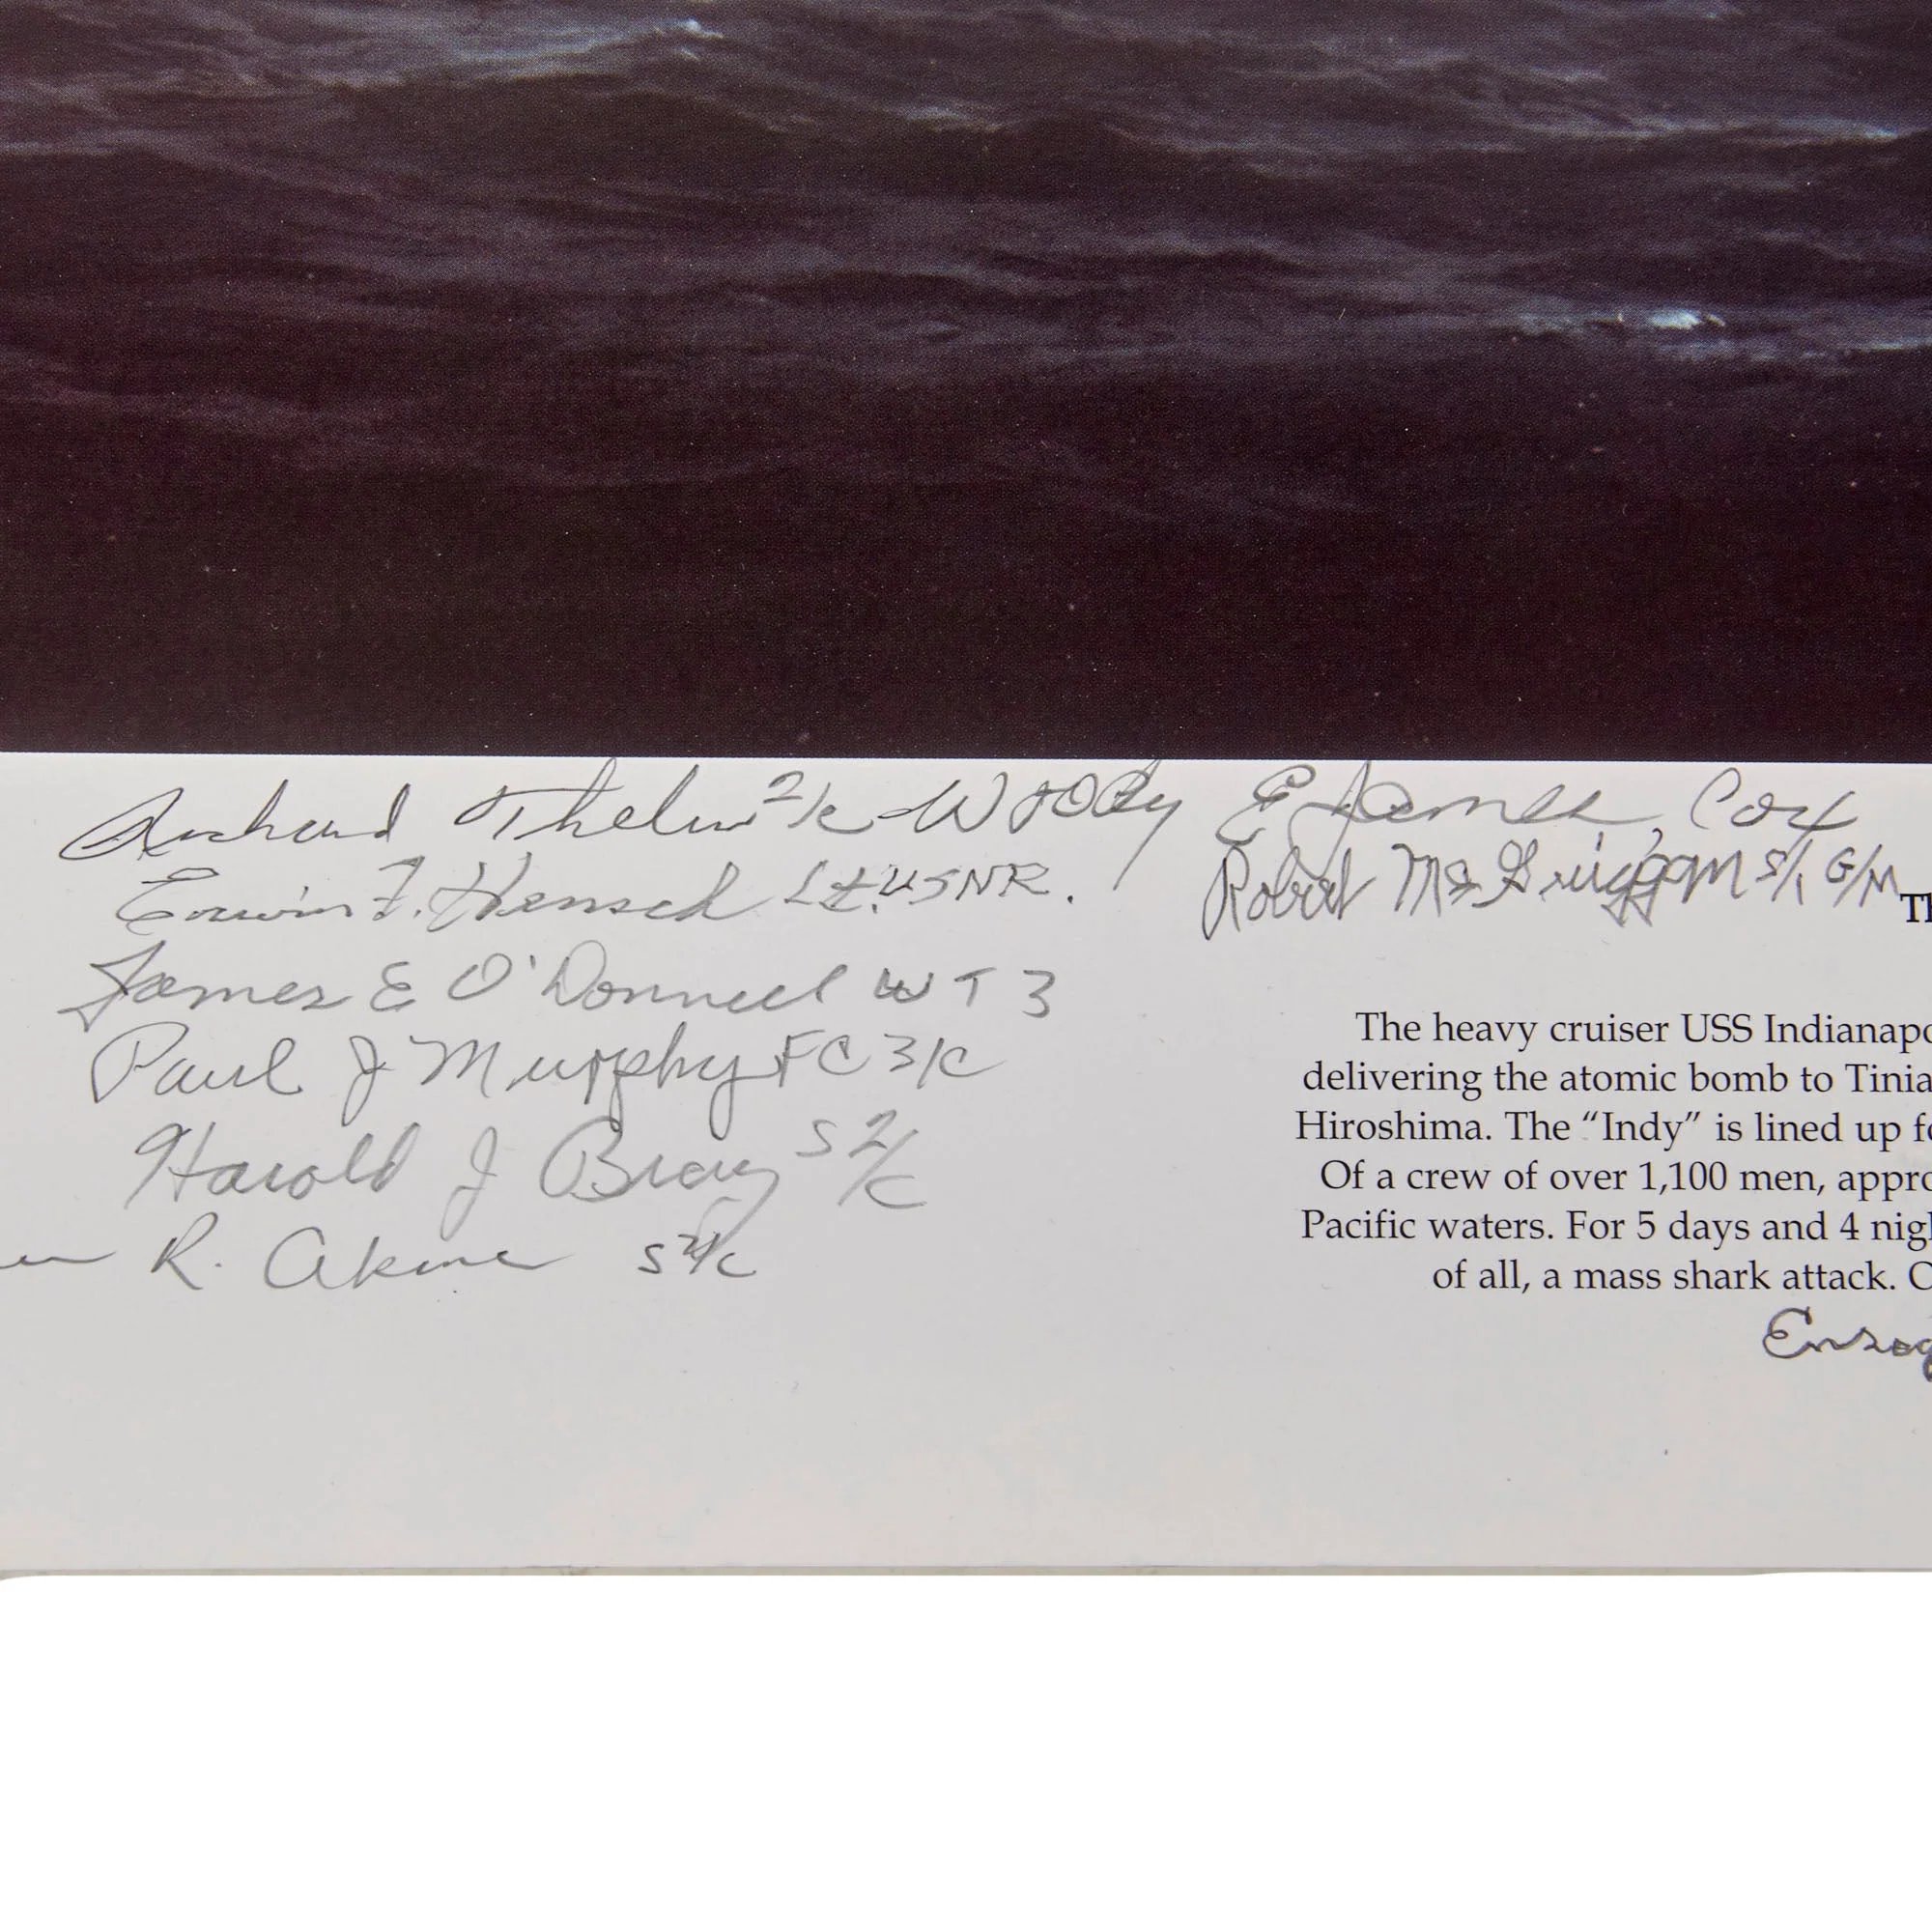 Richard Thelen 2/c - Woody E James, Cox
Erwin F. Hensch Lt. USNR.
Robert McGuiggan S/1 G/M
Th
James E O'Donnell WT3
Paul J Murphy FC 3/c
Harold J Bray S 2/c
R. Akines S2/c
The heavy cruiser USS Indianapo
delivering the atomic bomb to Tinia
Hiroshima. The “Indy” is lined up fo
Of a crew of over 1,100 men, appro
Pacific waters. For 5 days and 4 nigh
of all, a mass shark attack. O